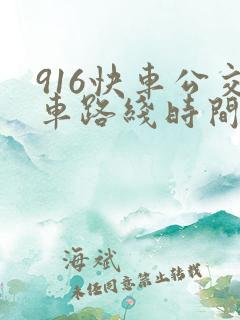 916快車公交
車路綫時間
海斌
未任同意禁止转载